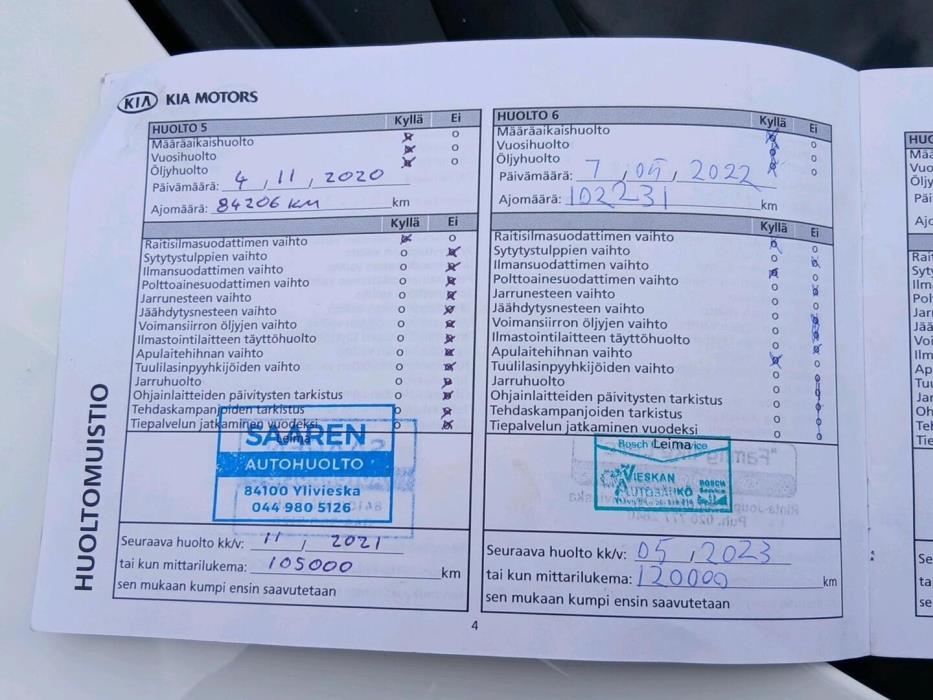 KIA KIA MOTORS
HUOLTO 5 Kyllä Ei
Määräaikaishuolto
Vuosihuolto
Öljyhuolto
Päivämäärä: 4, 11, 2020
Ajomäärä: 84206 KM km
Kyllä Ei
Raitisilmasuodattimen vaihto
Sytytystulppien vaihto
Ilmansuodattimen vaihto
Polttoainesuodattimen vaihto
Jarrunesteen vaihto
Jäähdytysnesteen vaihto
Voimansiirron öljyjen vaihto
Ilmastointilaitteen täyttöhuolto
Apulaitehihnan vaihto
Tuulilasinpyyhkijöiden vaihto
Jarruhuolto
Ohjainlaitteiden päivitysten tarkistus
Tehdaskampanjoiden tarkistus
Tiepalvelun jatkaminen vuodeksi
Leima
SAAREN
AUTOHUOLTO
84100 Ylivieska
044 980 5126
Seuraava huolto kk/v: 11 / 2021
tai kun mittarilukema: 105000 km
sen mukaan kumpi ensin saavutetaan
HUOLTO 6 Kyllä Ei
Määräaikaishuolto
Vuosihuolto
Öljyhuolto
Päivämäärä: 7, 05, 2022
Ajomäärä: 102231 km
Kyllä Ei
Raitisilmasuodattimen vaihto
Sytytystulppien vaihto
Ilmansuodattimen vaihto
Polttoainesuodattimen vaihto
Jarrunesteen vaihto
Jäähdytysnesteen vaihto
Voimansiirron öljyjen vaihto
Ilmastointilaitteen täyttöhuolto
Apulaitehihnan vaihto
Tuulilasinpyyhkijöiden vaihto
Jarruhuolto
Ohjainlaitteiden päivitysten tarkistus
Tehdaskampanjoiden tarkistus
Tiepalvelun jatkaminen vuodeksi
Bosch Leima
VIESKAN
AUTOSÄHKÖ
BOSCH
Service
Seuraava huolto kk/v: 05, 2023
tai kun mittarilukema: 120000 km
sen mukaan kumpi ensin saavutetaan
HUOLTOMUISTIO
4